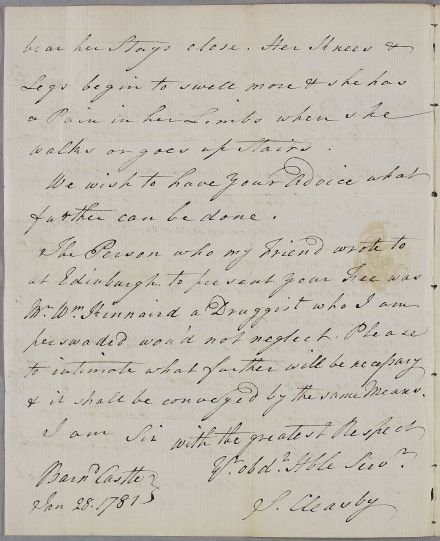 bear her Stays close. Her Knees &
Legs begin to swell more & she has
a Pain in her Limbs when she
walks or goes up Stairs.
We wish to have your Advice what
further can be done.
The Person who my Friend wrote to
at Edinburgh to present your Fee was
Mr. Wm. Kinnaird a Druggist who I am
perswaded wou'd not neglect. Please
to intimate what further will be necessary
& it shall be conveyed by the same Means.
I am Sir with the greatest Respect
Yr. obdt. Hble Servt.
Barnd Castle
Jan 28. 1781
J. Cleasby